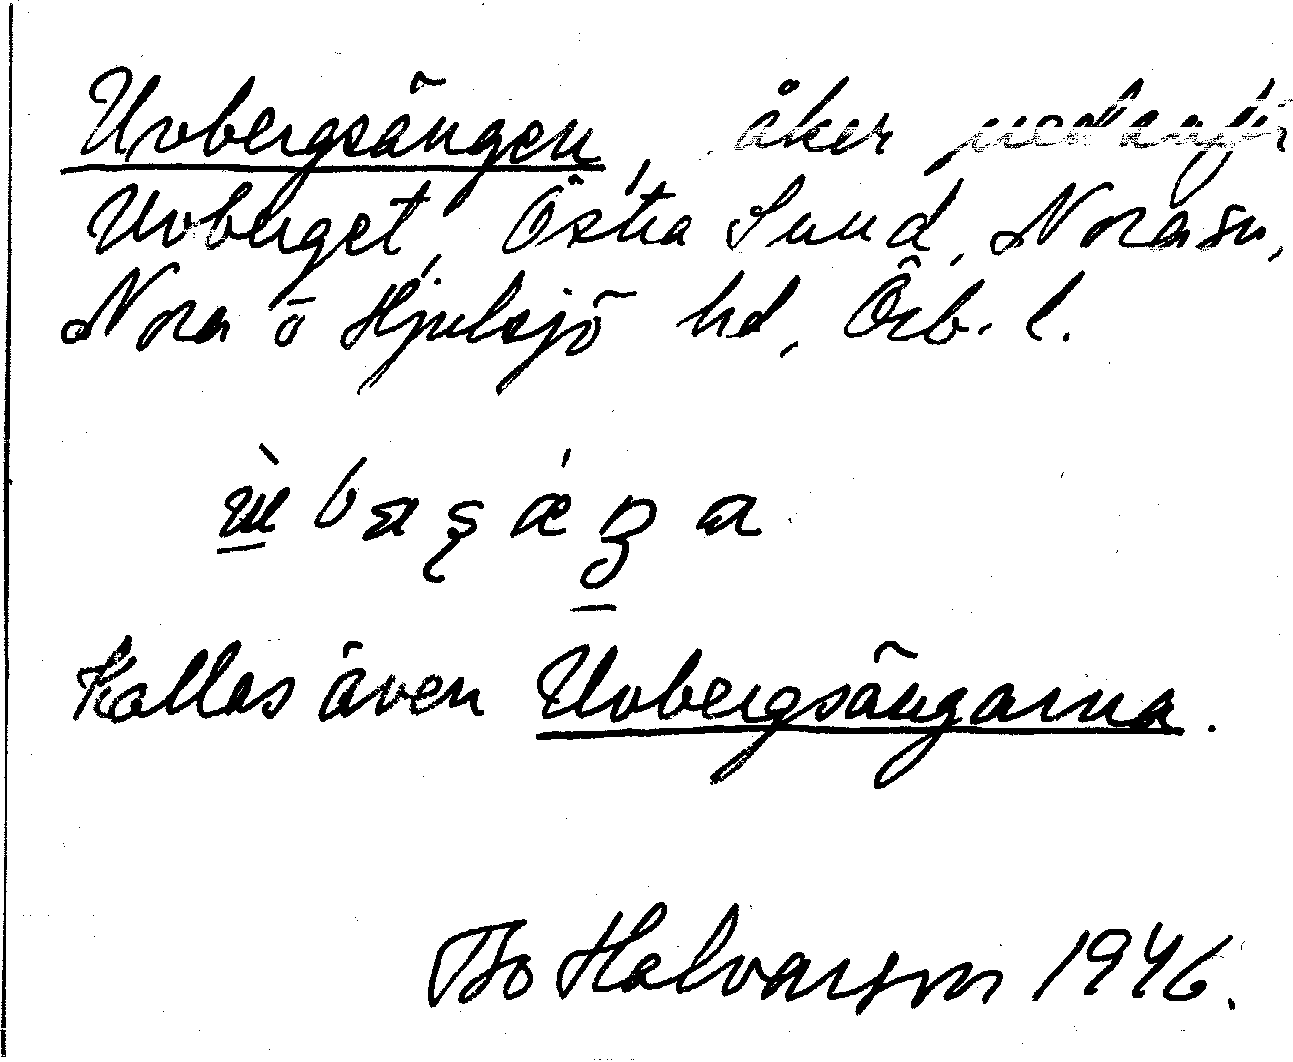 Uvbergsängen, åker nedanför
Uvberget, Östra Sund, Nora sn,
Nora o Hjulsjö hd, Örb. l.
Kallas även Uvbergsängarna.
Bo Halvarson 1946.